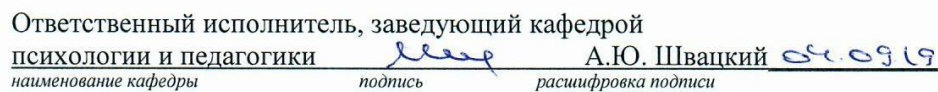 Ответственный исполнитель, заведующий кафедрой
психологии и педагогики А.Ю. Швацкий 04.09 19
наименование кафедры подпись расшифровка подписи